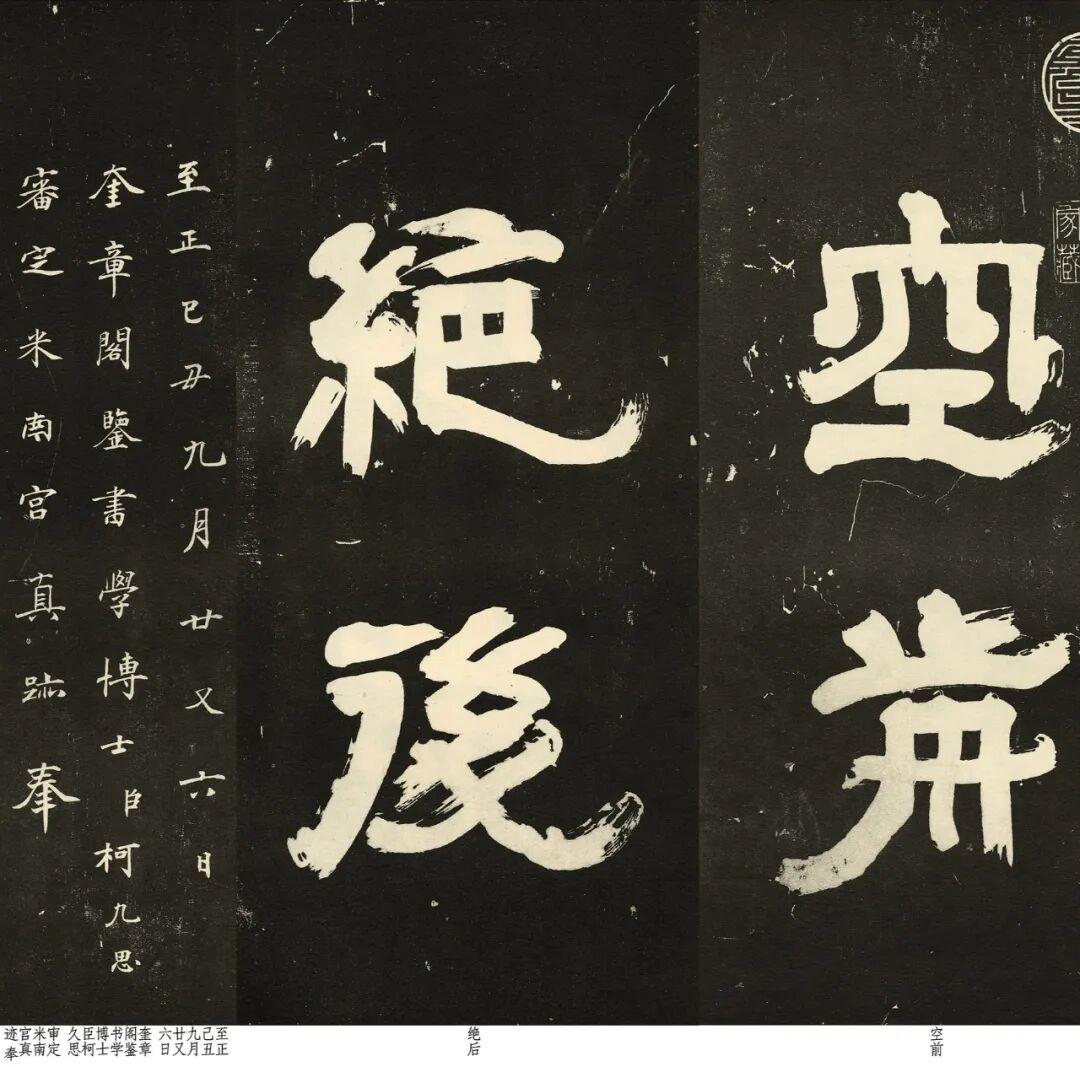 家藏
空歬
絶後
至正己丑九月廿又六日
奎章閣鑒書學博士臣柯九思
審定米南宫真跡奉
空前
绝后
至正己丑九月廿又六日
奎章阁鉴书学博士臣柯久思
审定米南官真迹奉